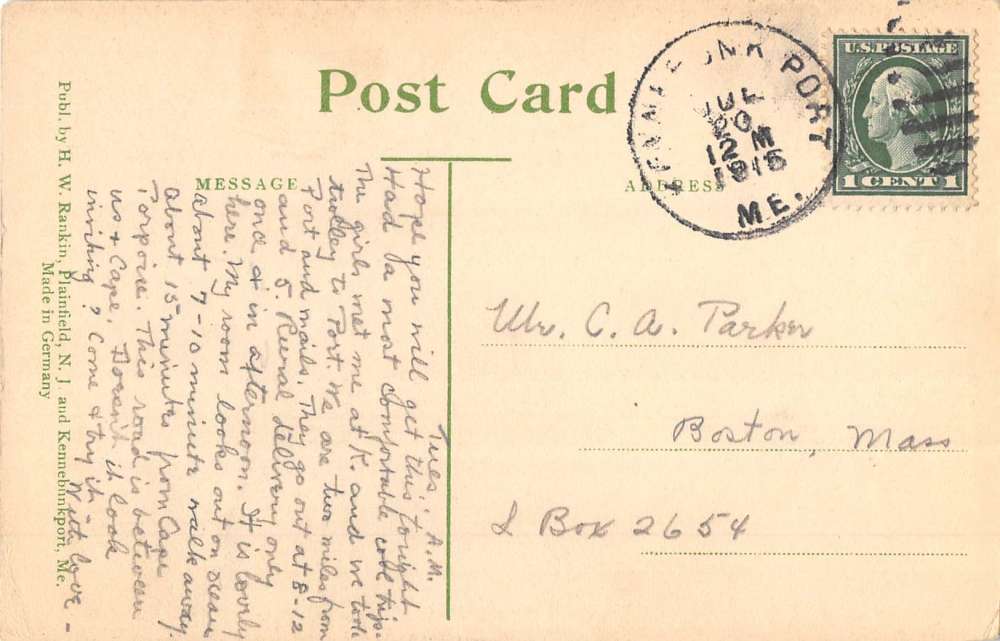 Post Card
MESSAGE
ADDRESS
PORT
JUL
20
12 M
1915
ME.
U.S. POSTAGE
1 CENT 1
Mr. C. A. Parker
Boston, Mass
Box 2654
Tues. A.M.
Hope you will get this tonight
Had a most comfortable trip.
The girls met me at K. and we took
trolley to Port. We are two miles from
Port and mails. They go out at 8-12
and 5. Rural delivery only
once & in afternoon. It is lovely
here. My room looks out on ocean
about 7-10 minute walk away.
about 15 minutes from Cape
Porpoise. This road is between
us & Cape. Doesn't it look
inviting? Come & try it – With love –
Publ. by H. W. Rankin, Plainfield, N. J. and Kennebunkport, Me.
Made in Germany